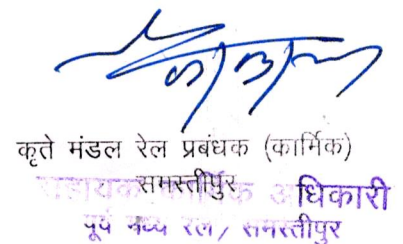 कृते मंडल रेल प्रबंधक (कार्मिक)
समस्तीपुर
सहायक कार्मिक अधिकारी
पूर्व मध्य रेल/ समस्तीपुर